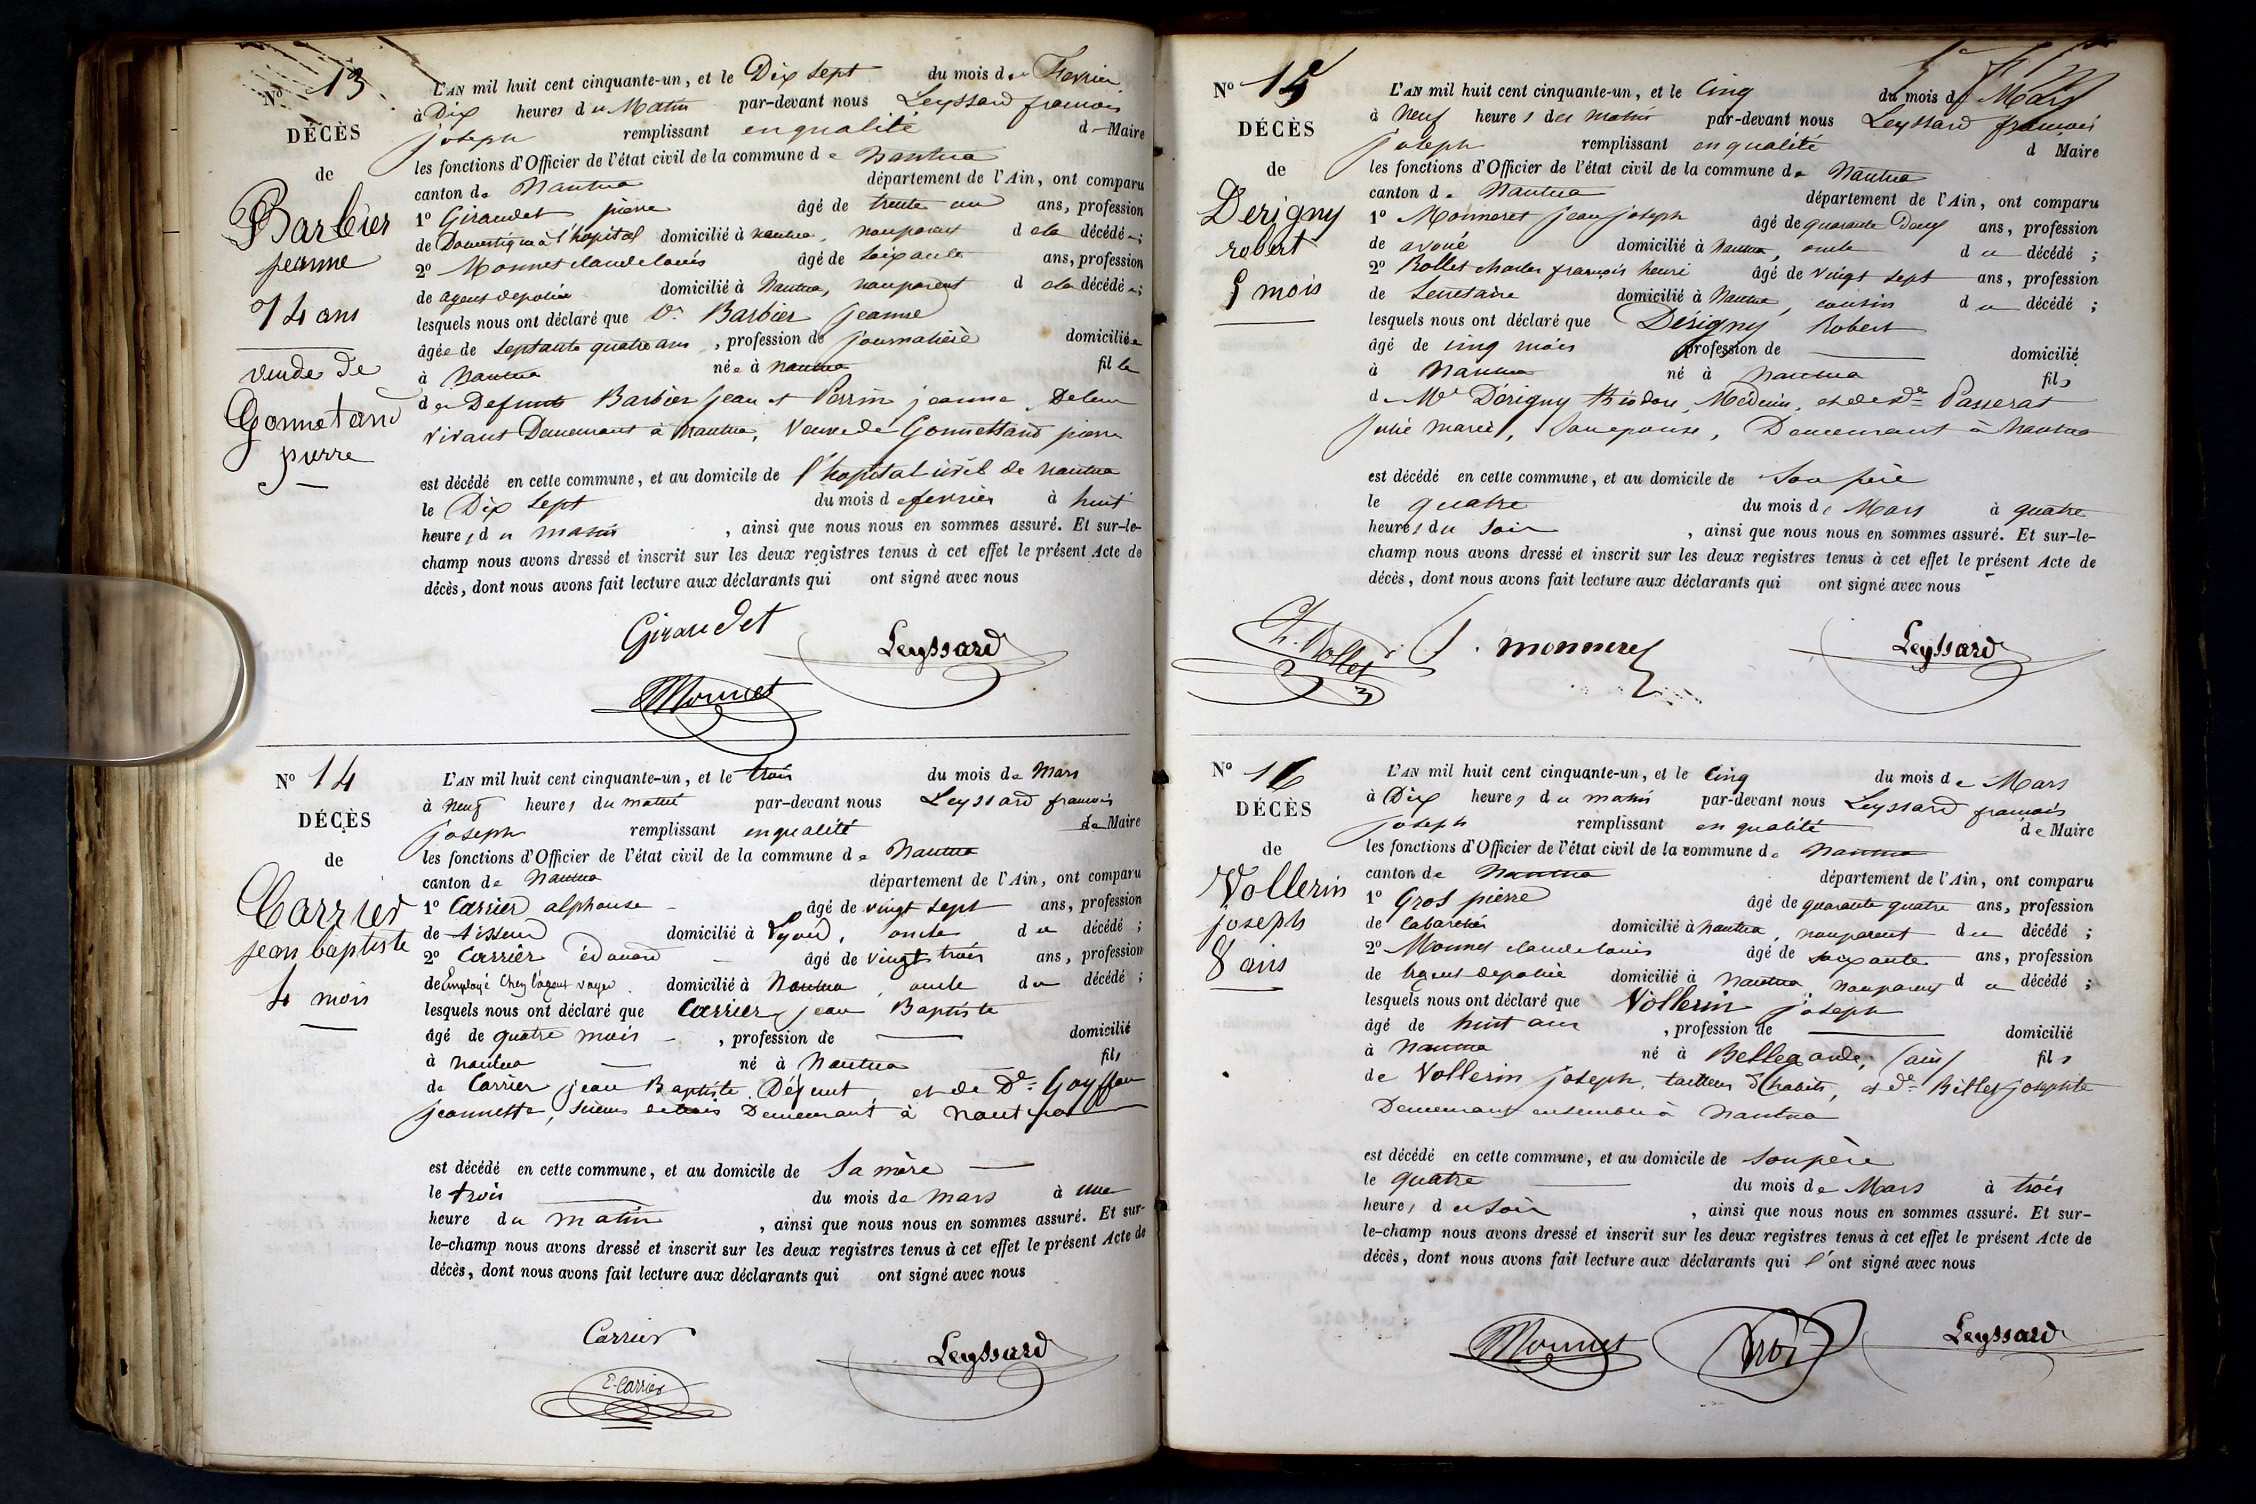 N° 13
DÉCÈS
de
Barbier
jeanne
74 ans
veuve de
Gonnetand
pierre
L'AN mil huit cent cinquante-un, et le Dix sept du mois de Fevrier
à Dix heures du Matin par-devant nous Leyssard françois
joseph remplissant en qualité d Maire
les fonctions d'Officier de l'état civil de la commune de Nantua
canton de Nantua département de l'Ain, ont comparu
1° Giraudet pierre âgé de trente un ans, profession
de Domestique à l'hopital domicilié à nantua, non parent de la décédée;
2° Monnet claude louis âgé de soixante ans, profession
de agent de police domicilié à Nantua, non parent de la décédée;
lesquels nous ont déclaré que Ve Barbier jeanne
âgée de septante quatre ans, profession de journalière domiciliée
à Nantua née à nantua fille
de Defunts Barbier jean et Perrin jeanne, De leur
vivant Demeurant à Nantua, Veuve de Gonnettand pierre
est décédé en cette commune, et au domicile de l'hopital civil de nantua
le Dix sept du mois de fevrier à huit
heures du matin, ainsi que nous nous en sommes assuré. Et sur-le-
champ nous avons dressé et inscrit sur les deux registres tenus à cet effet le présent Acte de
décès, dont nous avons fait lecture aux déclarants qui ont signé avec nous
Giraudet
Leyssard
Monnet
N° 14
DÉCÈS
de
Carrier
jean baptiste
4 mois
L'AN mil huit cent cinquante-un, et le trois du mois de Mars
à neuf heures du matin par-devant nous Leyssard françois
joseph remplissant en qualité de Maire
les fonctions d'Officier de l'état civil de la commune de Nantua
canton de Nantua département de l'Ain, ont comparu
1° Carrier alphonse âgé de vingt sept ans, profession
de tisseur domicilié à Lyon, oncle du décédé;
2° Carrier édouard âgé de vingt trois ans, profession
de Employé Chez l'agent voyer domicilié à Nantua, oncle du décédé;
lesquels nous ont déclaré que Carrier jean Baptiste
âgé de quatre mois, profession de domicilié
à nantua né à Nantua fils
de Carrier jean Baptiste Défunt et de De Goyffon
jeannette, Demeurant à Nantua
est décédé en cette commune, et au domicile de Sa mère
le trois du mois de mars à une
heure du matin, ainsi que nous nous en sommes assuré. Et sur-
le-champ nous avons dressé et inscrit sur les deux registres tenus à cet effet le présent Acte de
décès, dont nous avons fait lecture aux déclarants qui ont signé avec nous
Carrier
Leyssard
E. Carrier
N° 15
DÉCÈS
de
Derigny
robert
5 mois
L'AN mil huit cent cinquante-un, et le Cinq du mois de Mars
à Neuf heures du matin par-devant nous Leyssard françois
joseph remplissant en qualité d Maire
les fonctions d'Officier de l'état civil de la commune de Nantua
canton de Nantua département de l'Ain, ont comparu
1° Monneret jean joseph âgé de quarante Deux ans, profession
de avoué domicilié à Nantua, oncle du décédé;
2° Rollet charles françois henri âgé de vingt sept ans, profession
de Secretaire domicilié à Nantua, cousin du décédé;
lesquels nous ont déclaré que Dérigny Robert
âgé de cinq mois profession de domicilié
à Nantua né à Nantua fils
de Mr Dérigny théodore, Médecin, et de De Passerat
Julie marie, Son épouse, Demeurant à Nantua
est décédé en cette commune, et au domicile de Son père
le quatre du mois de Mars à quatre
heures du Soir, ainsi que nous nous en sommes assuré. Et sur-le-
champ nous avons dressé et inscrit sur les deux registres tenus à cet effet le présent Acte de
décès, dont nous avons fait lecture aux déclarants qui ont signé avec nous
h. Rollet
J. monneret
Leyssard
N° 16
DÉCÈS
de
Vollerin
joseph
8 ans
L'AN mil huit cent cinquante-un, et le Cinq du mois de Mars
à Dix heures du matin par-devant nous Leyssard françois
joseph remplissant en qualité de Maire
les fonctions d'Officier de l'état civil de la commune de Nantua
canton de Nantua département de l'Ain, ont comparu
1° Gros pierre âgé de quarante quatre ans, profession
de Cabaretier domicilié à Nantua, non parent du décédé;
2° Monnet claude louis âgé de soixante ans, profession
de Agent de police domicilié à Nantua, non parent du décédé;
lesquels nous ont déclaré que Vollerin joseph
âgé de huit ans, profession de domicilié
à Nantua né à Bellegarde, (ain) fils
de Vollerin joseph, tailleur d'habits, et De Billet josephte
Demeurant ensemble à Nantua
est décédé en cette commune, et au domicile de Son père
le quatre du mois de Mars à trois
heures du Soir, ainsi que nous nous en sommes assuré. Et sur-
le-champ nous avons dressé et inscrit sur les deux registres tenus à cet effet le présent Acte de
décès, dont nous avons fait lecture aux déclarants qui l'ont signé avec nous
Monnet
Leyssard